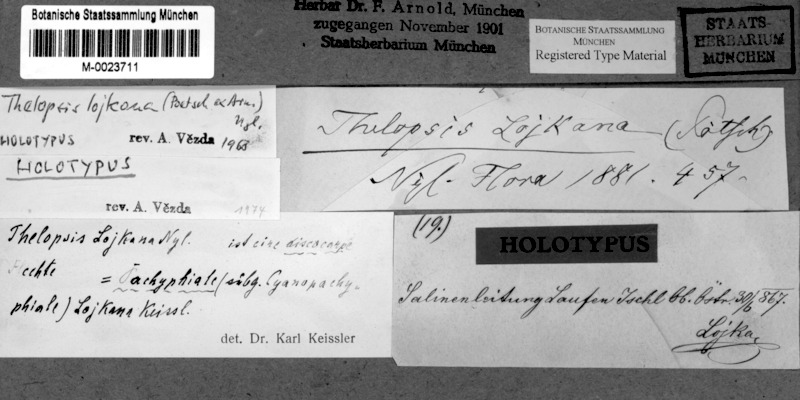 Botanische Staatssammlung München
M-0023711
Herbar Dr. F. Arnold, München
zugegangen November 1901
Staatsherbarium München
BOTANISCHE STAATSSAMMLUNG
MÜNCHEN
Registered Type Material
STAATS-
HERBARIUM
MÜNCHEN
Thelopsis lojkana (Poetsch ex Arn.)
Nyl.
HOLOTYPUS rev. A. Vězda 1968
HOLOTYPUS
rev. A. Vězda 1974
Thelopsis Lojkana Nyl. ist eine discocarpe
Flechte = Pachyphiale (subg. Cyanopachy-
phiale) Lojkana Keissl.
det. Dr. Karl Keissler
Thelopsis Lojkana (Pötsch)
Nyl. Flora 1881. 457.
(19.)
HOLOTYPUS
Salinenleitung Laufen Ischl Ob. Östr. 30/6 867.
Lojka